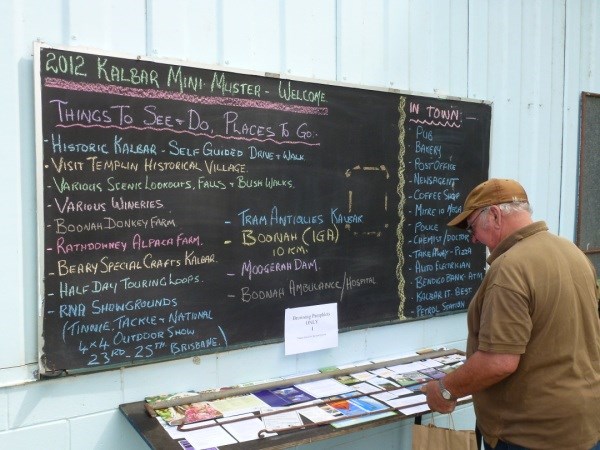 2012 KALBAR MINI MUSTER - WELCOME.
THINGS TO SEE & DO, PLACES TO GO.
- HISTORIC KALBAR - SELF GUIDED DRIVE & WALK.
- VISIT TEMPLIN HISTORICAL VILLAGE.
- VARIOUS SCENIC LOOKOUTS, FALLS & BUSH WALKS.
- VARIOUS WINERIES
- BOONAH DONKEY FARM
- RATHDOWNEY ALPACA FARM.
- BEARY SPECIAL CRAFTS KALBAR.
- HALF DAY TOURING LOOPS.
- RNA SHOWGROUNDS
(TINNIE, TACKLE & NATIONAL
4x4 OUTDOOR SHOW
23RD - 25TH BRISBANE.)
- TRAM ANTIQUES KALBAR
- BOONAH (IGA)
10 KM.
- MOOGERAH DAM.
- BOONAH AMBULANCE/HOSPITAL
IN TOWN -
- PUB
- BAKERY
- POST OFFICE
- NEWSAGENT
- COFFEE SHOP
- MITRE 10 MEGA
- POLICE
- CHEMIST/DOCTOR
- TAKE AWAY - PIZZA
- AUTO ELECTRICIAN
- BENDIGO BANK - ATM
- KALBAR IT BEST
- PETROL STATION